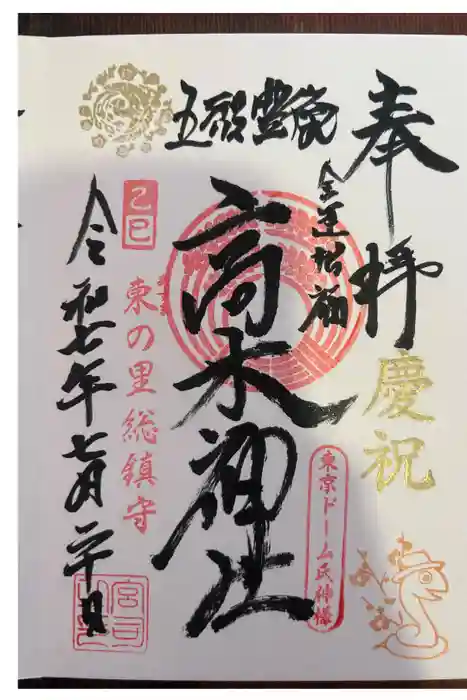 奉拝
慶祝
五穀豊穣
金運招福
高木神社
東京ドーム氏神様
東の里総鎮守
己巳
令和七年七月二十日
宮司之印